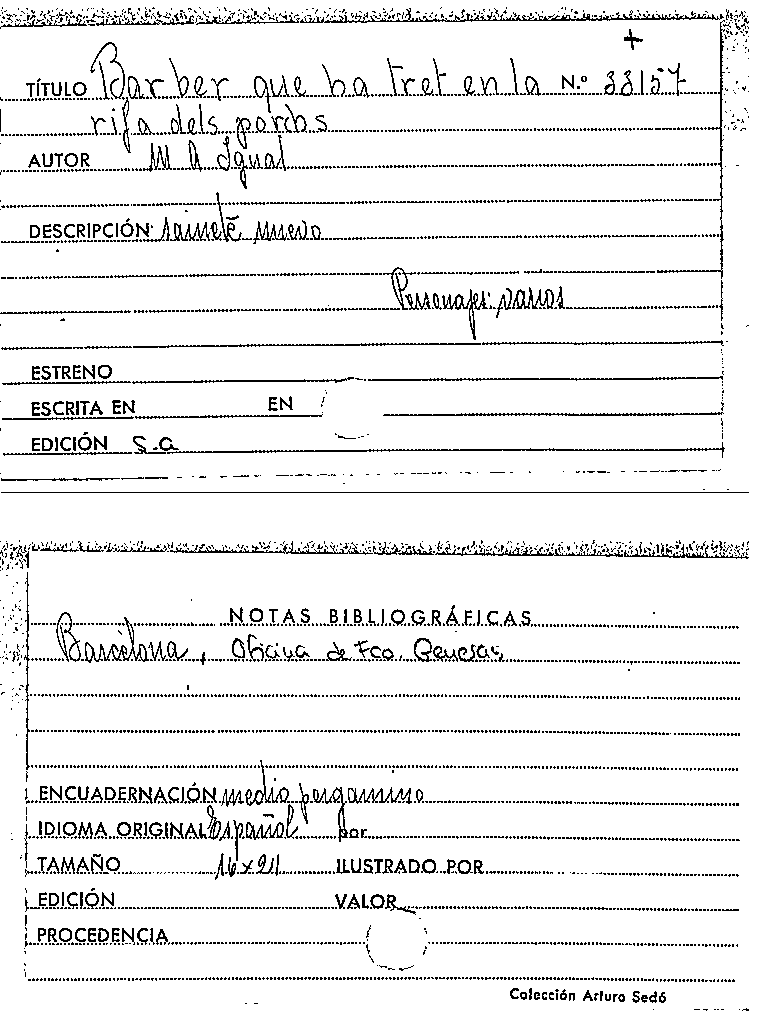 +
TÍTULO Barber que ha tret en la N.º 33157
rifa dels porchs
AUTOR M A Igual
DESCRIPCIÓN sainete nuevo
Personajes: varios
ESTRENO
ESCRITA EN EN
EDICIÓN S.a
NOTAS BIBLIOGRÁFICAS
Barcelona, Oficina de Fco. Generas,
ENCUADERNACIÓN medio pergamino
IDIOMA ORIGINAL Español por
TAMAÑO 16 x 21 ILUSTRADO POR
EDICIÓN VALOR
PROCEDENCIA
Colección Arturo Sedó